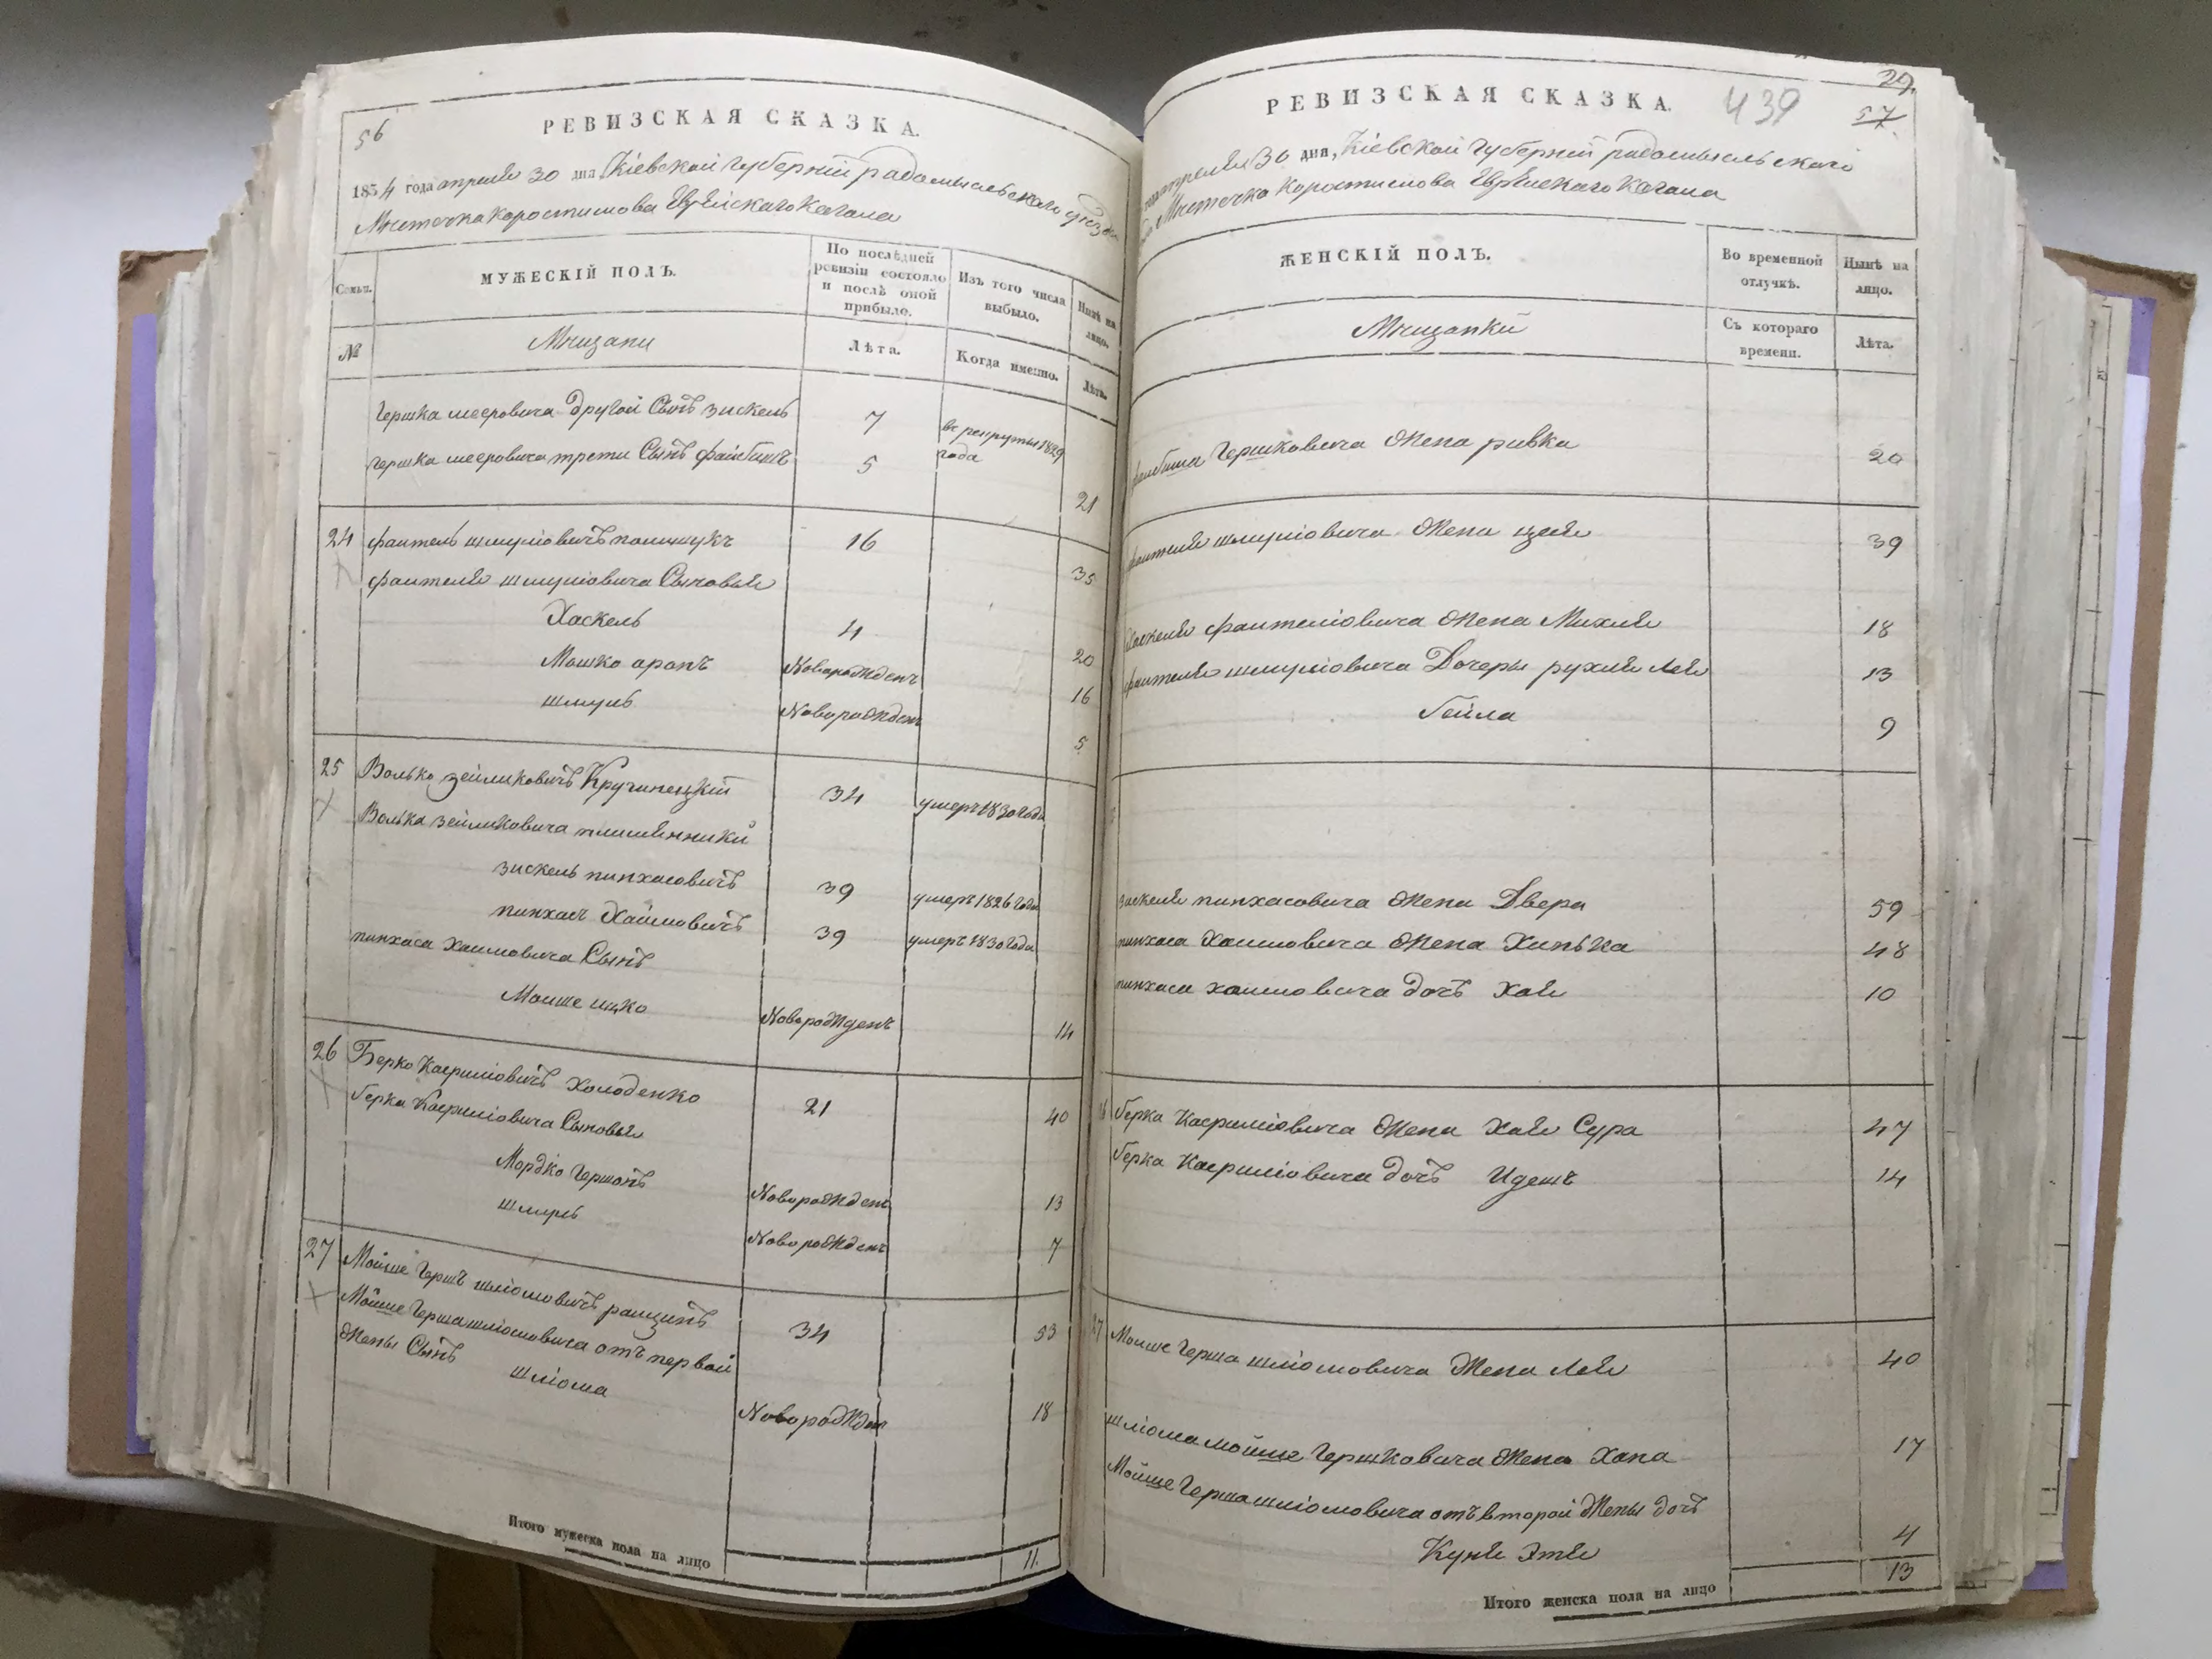 56
РЕВИЗСКАЯ СКАЗКА.
1834 года апреля 30 дня Кіевской Губерніи радомысльского уезда
Мистечка Коростишова Еврейскаго Кагала
Семьи.
МУЖЕСКІЙ ПОЛЪ.
По послѣдней ревизіи состояло и послѣ оной прибыло.
Изъ того числа выбыло.
Нынѣ на лицо.
№
Мищани
Лѣта.
Когда именно.
Лѣта.
Гершка мееровича другой Сынъ зискель 7 в рекруты 1829 года
Гершка мееровича трети Сынъ файбишъ 5 21
24 файтель шмуліовичъ полищукъ 16 35
файтеля шмуліовича Сыновья
Хаскель 4 20
Мошко аронъ Новорожденъ 16
шмуль Новорожденъ 5
25 Волько зейликовичъ Кручинецкій 34 умеръ 1830 года
Волька зейликовича племянники
зискель пинхасовичъ 39 умеръ 1826 года
пинхасъ Хаимовичъ 39 умеръ 1830 года
пинхаса хаимовича Сынъ
Моише ицко Новорожденъ 14
26 Берко Касриліовичъ Холоденко 21 40
берка Касриліовича Сыновья
Мордко Гершонъ Новорожденъ 13
шмуль Новорожденъ 7
27 Мойше Гершъ шліомовичъ ращинъ 34 53
Мойше Герша шліомовича отъ первой
Жены Сынъ
шліома Новорожден 18
Итого мужеска пола на лицо 11.
29.
439
57
РЕВИЗСКАЯ СКАЗКА.
апреля 30 дня, Кіевской Губерніи радомысльского
Мистечка Коростишова Еврейскаго Кагала
ЖЕНСКІЙ ПОЛЪ.
Во временной отлучкѣ.
Нынѣ на лицо.
Мищанки
Съ котораго времени.
Лѣта.
файбиша Гершковича Жена ривка 20
файтеля шмуліовича Жена цля 39
Хаскеля файтеліовича Жена Михля 18
файтеля шмуліовича Дочеры рухля лея 13
бейла 9
зискеля пинхасовича Жена Двера 59
пинхаса Хаимовича Жена Хинька 48
пинхаса хаимовича дочъ Хая 10
26 берка Касриліовича Жена Хая Сура 47
берка Касриліовича дочъ Идесъ 14
27 Моише Герша шліомовича Жена Лея 40
шліома мойше Гершковича Жена Хана 17
Мойше Герша шліомовича отъ второй Жены дочъ
Куня Этя 4
Итого женска пола на лицо 13